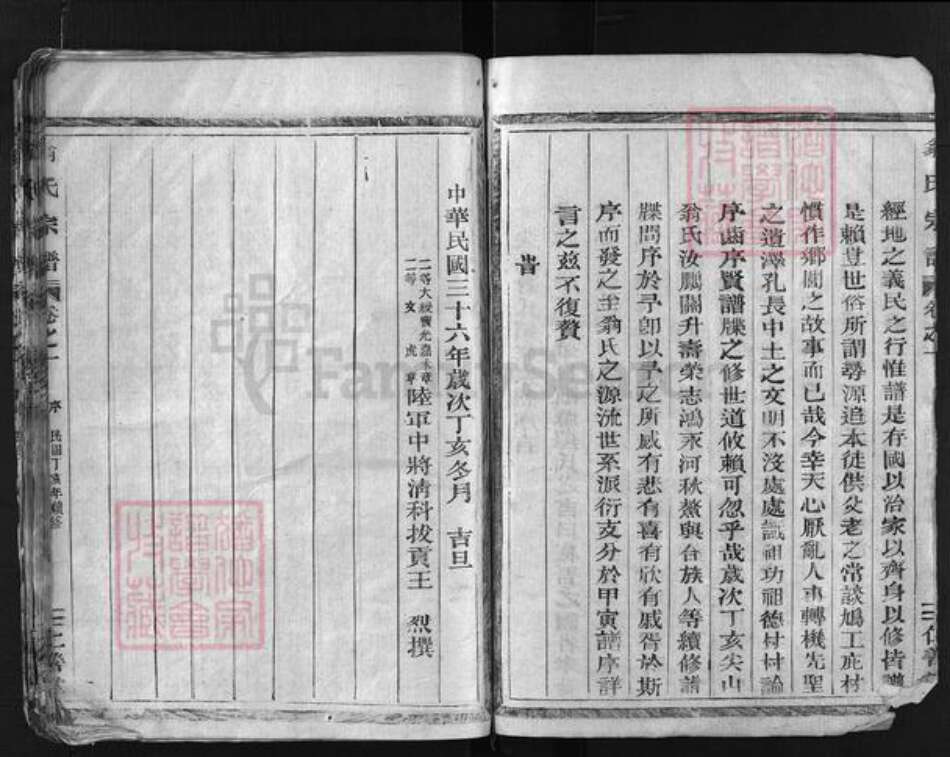 經地之義民之行惟譜是存國以治家以齊身以修皆譜
是賴豈世俗所謂尋源追本徒供父老之常談鳩工庇材
慣作鄉閭之故事而已哉今幸天心厭亂人事轉機先聖
之遺澤孔長中土之文明不沒處處識祖功祖德村村論
序齒序賢譜牒之修世道攸賴可忽乎哉歲次丁亥尖山
翁氏汝鵬關升壽榮志鴻永河秋鰲與合族人等續修譜
牒問序於予卽以予之所感有悲有喜有欣有戚胥於斯
序而發之至翁氏之源流世系派衍支分於甲寅譜序詳
言之茲不復贅
旹
中華民國三十六年歲次丁亥冬月 吉旦
二等大綬寶光嘉禾章
二等文虎章
陸軍中將清科拔貢王 烈撰
翁氏宗譜 卷之一 序 民國丁亥年續修
翁氏宗譜 卷之一